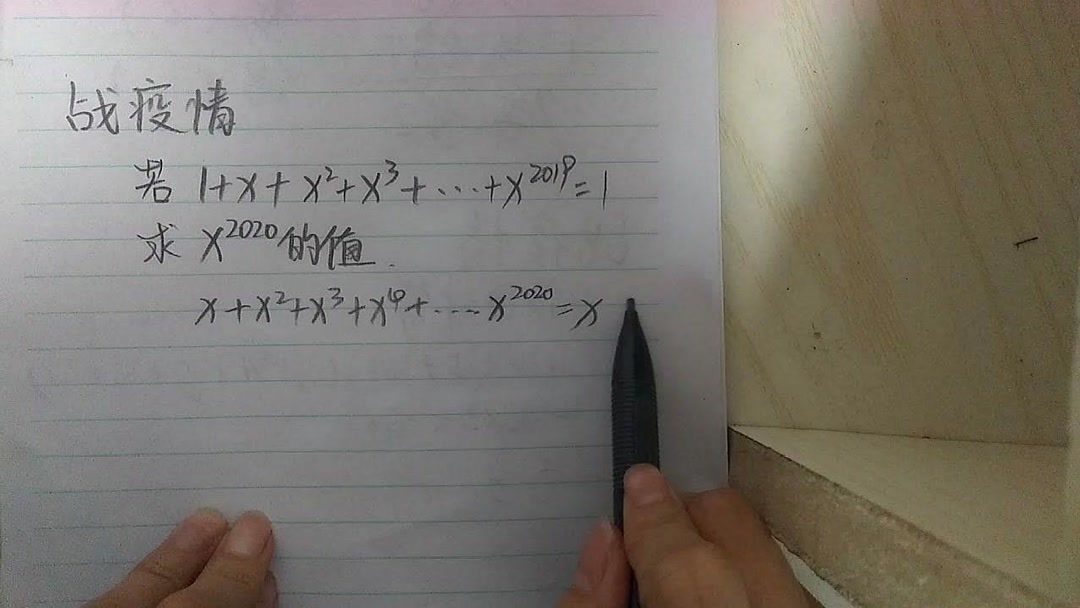 战疫情
若 1+x+x²+x³+···+x²⁰¹⁹=1
求 x²⁰²⁰的值.
x+x²+x³+x⁴+···x²⁰²⁰=x